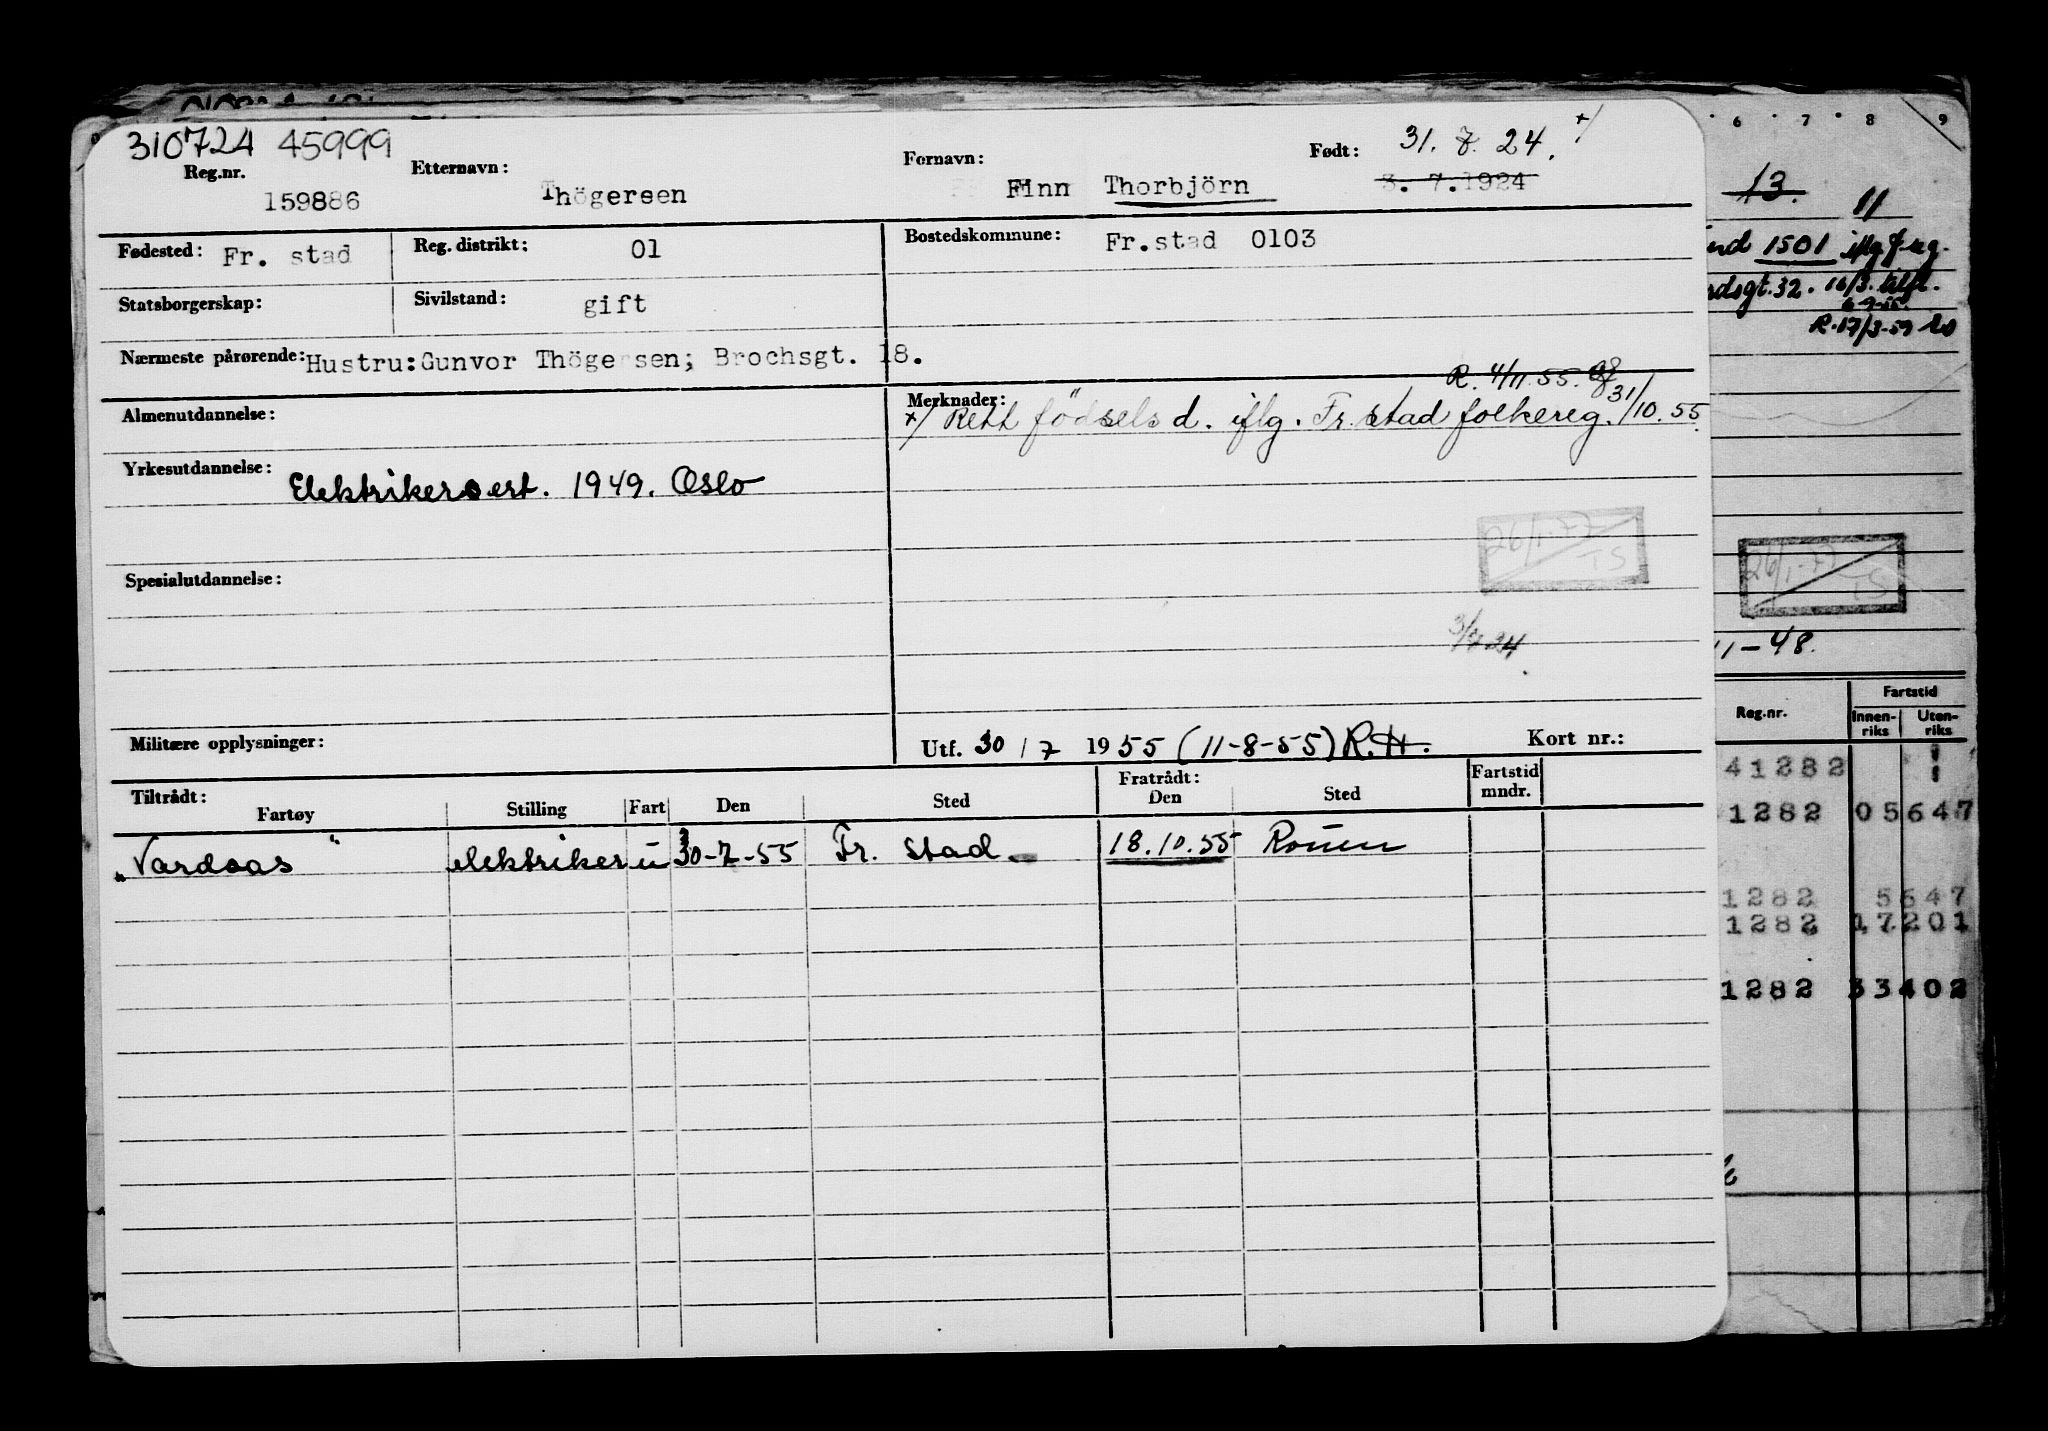 310724 45999
Reg.nr. 159886 Etternavn: Thögersen Fornavn: Finn Thorbjörn Født: 31. 7. 24. +/
3. 7.1924
Fødested: Fr. stad Reg. distrikt: 01 Bostedskommune: Fr.stad 0103
Statsborgerskap: Sivilstand: gift
Nærmeste pårørende: Hustru: Gunvor Thögersen; Brochsgt. 18.
R. 4/11.55.
Almenutdannelse: Merknader: +/ Rett födselsd. iflg. Fr.stad folkereg. 31/10.55.
Yrkesutdannelse: Elektrikersert. 1949. Oslo
26/1-77
TS
Spesialutdannelse:
3/7 24
Militære opplysninger: Utf. 30 / 7 1955 (11-8-55) R.H. Kort nr.:
Tiltrådt: Fratrådt: Fartstid mndr.
Fartøy Stilling Fart Den Sted Den Sted
"Vardaas" elektriker u 30-7-55 Fr. stad 18.10.55 Rouen
6 7 8 9
13. 11
1501 iflg.
gt.32. 16/3.
6-9-55.
R.17/3-59
26/1-77
TS
11-48.
Reg.nr. Fartstid
Innenriks Utenriks
41282
1282 05647
1282 5647
1282 17201
1282 33402